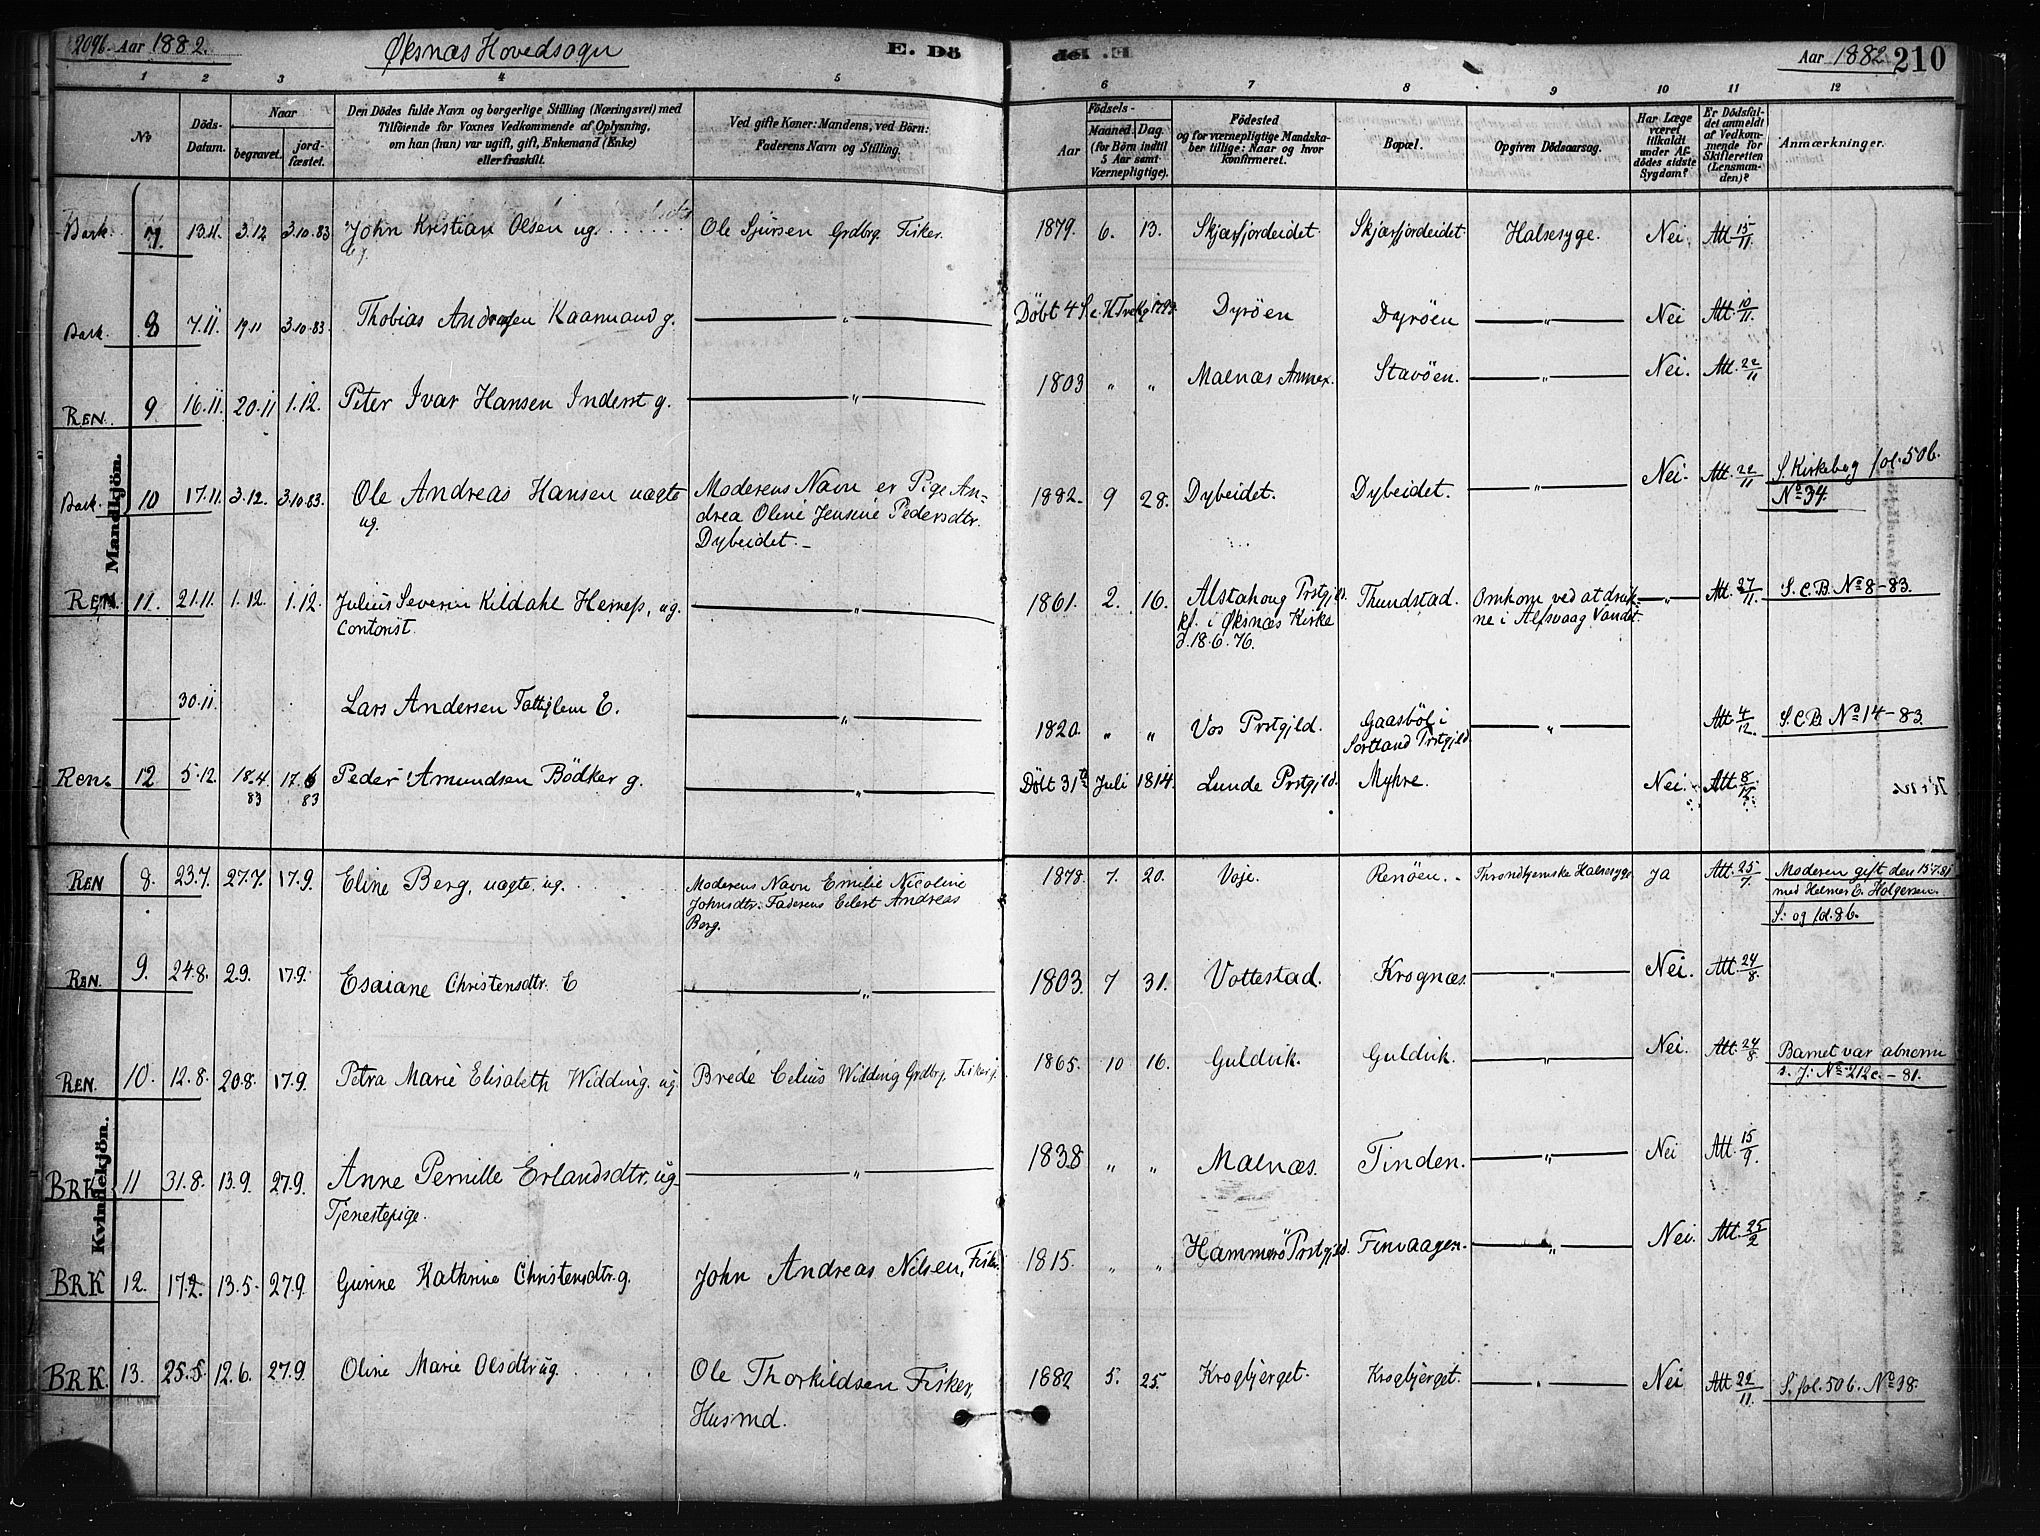 2096. Aar 1882. Øksnæs Hovedsogn E. Dö
del .E Aar 1882 210
1 2 3 4 5 6 7 8 9 10 11 12
No
Döds-Datum.
Naar
begravet.
jord-fæstet.
Den Dödes fulde Navn og borgerlige Stilling (Næringsvei) med
Tilföiende for Voxnes Vedkommende af Oplysning,
om han (hun) var ugift, gift, Enkemand (Enke)
eller fraskilt.
Ved gifte Koner: Mandens, ved Börn:
Faderens Navn og Stilling.
Födsels-
Aar
Maaned. Dag.
(for Börn indtil
5 Aar samt
Værnepligtige).
Födested
og for værnepligtige Mandska-
ber tillige: Naar og hvor
konfirmeret.
Bopæl.
Opgiven Dödsaarsag.
Har Læge
været
tilkaldt
under Af-
dödes sidste
Sygdom?
Er Dödsfal-
det anmeldt
af Vedkom-
mende for
Skifteretten
(Lensman-
den)?
Anmærkninger.
Mandkjön.
Bark. 7. 13.11. 3.12 3.10.83 John Kristian Olsen ug. Ole Sjursen Grdbrg. Fisker. 1879. 6. 13. Skjærfjordeidet. Skjærfjordeidet. Halsesyge. Nei. Att. 15/11.
Bark. 8 7.11. 19.11 3.10.83. Thobias Andersen Kaarmand g. — " — Döbt 4 S. e. H. Trek. Dyröen Dyröen — " — Nei Att. 10/11.
REN. 9 16.11. 20.11 1.12. Peter Ivar Hansen Inderst g. — " — 1803 " " Malnæs Annex. Stavöen. — " — Nei. Att. 22/11
Bark. 10 17.11. 3.12. 3.10.83. Ole Andreas Hansen uægte
ug.
Moderens Navn er Pige An-
drea Oline Jensine Pedersdtr.
Dybeidet.
1882. 9 28. Dybeidet. Dybeidet. — " — Nei. Att. 22/11 S. Kirkebog fol. 50 b.
No 34.
REN. 11. 21.11. 1.12. 1.12. Julius Severin Kildahl , ug.
Contorist.
— " — 1861. 2. 16. Alstahoug Prstgjld.
kf. i Øksnæs Kirke
d. 18.6.76.
Thundstad. Omkom ved at druk-
ne i Alfsvaag Vandet.
— " — Att. 27/11. S.C.B. No 8-83.
30.11. Lars Andersen Fattiglem E. — " — 1820. " " Vos Prstgjld. Gaasböl i
Sortland Prstgjld.
— " — Att. 4/12. S.C.B. No 14-83.
Ren. 12. 5.12. 18.4 83 17.6 83 Peder Amundsen Bödker g. — " — Döbt 31te Juli 1814. Lunde Prstgjld. Myhre. Nei. Att. 8/12.
Kvindekjön.
REN 8. 23.7. 27.7. 17.9. Eline Berg, uægte, ug. Moderens Navn Emilie Nicoline
Johnsdtr. Faderens Eilert Andreas
Berg.
1878. 7. 20. Voje. Renöen. Throndhjemske Halsesyge ja Att. 25/7. Moderen gift den 15.7.81
med Helmer E. Holgersen.
S. og fol. 86.
REN. 9. 24.8. 2.9. 17.9. Esaiane Christensdtr. E — " — 1803. 7 31. Vottestad. Krognæs. — " — Nei. Att. 24/8.
REN. 10. 12.8. 20.8. 17.9. Petra Marie Elisabeth Widding. ug. Brede Celius Widding Grdbrg. Fisker g. 1865. 10 16. Guldvik. Guldvik. — " — Nei. Att. 24/8. Barnet var abnorm
s. J. No 212c.-81.
BRK 11 31.8. 13.9. 27.9. Anne Pernille Erlandsdtr. ug
Tjenestepige.
— " — 1838 " " Malnæs. Tinden. — " — Nei Att. 15/9.
BRK 12. 17.2. 13.5. 27.9. Gurine Kathrine Christensdtr. g. John Andreas Nilsen, Fisker. 1815. " " Hammerö Prstgjld. Finvaagen. — " — Nei. Att. 25/2
BRK. 13. 25.5. 12.6. 27.9. Oline Marie Olsdtr ug. Ole Thorkildsen Fisker,
Husmd.
1882 5. 25. Krogbjerget. Krogbjerget. — " — Nei Att. 22/11. S. fol. 50 b. No 38.